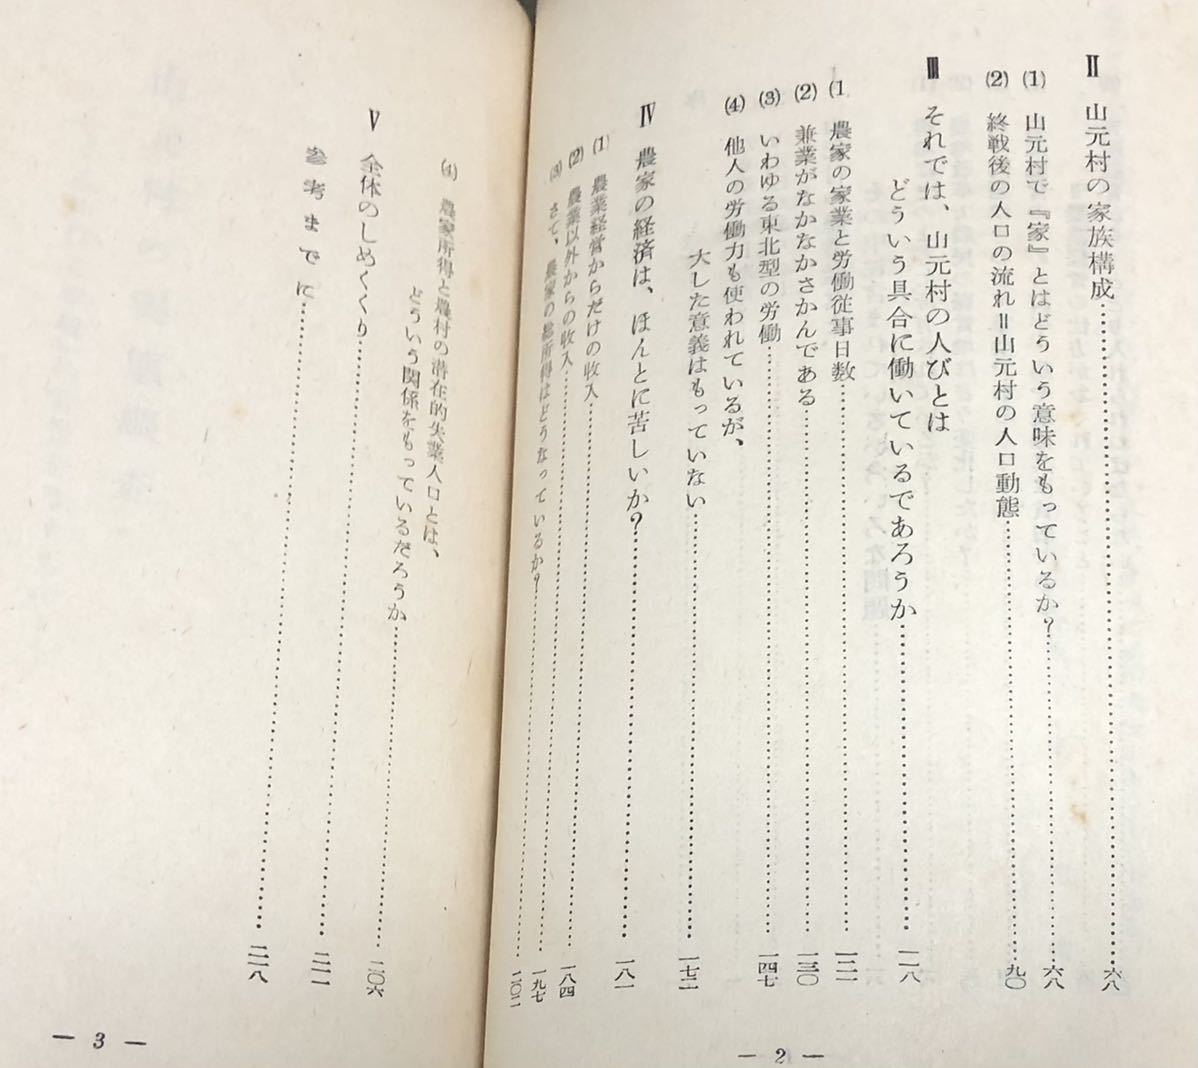 Ⅱ 山元村の家族構成……六八
(1) 山元村で『家』とはどういう意味をもっているか?……六八
(2) 終戦後の人口の流れ=山元村の人口動態……九〇
Ⅲ それでは、山元村の人びとは
どういう具合に働いているであろうか……一一八
(1 農家の家業と労働従事日数……一二一
(2) 兼業がなかなかさかんである……一三〇
(3) いわゆる東北型の労働……一四七
(4) 他人の労働力も使われているが、
大した意義はもっていない……一七二
Ⅳ 農家の経済は、ほんとに苦しいか?……一八一
(1) 農業経営からだけの収入……一八四
(2) 農業以外からの収入……一九七
(3) さて、農家の総所得はどうなっているか?……二〇二
— 2 —
(4) 農家所得と農村の潜在的失業人口とは、
どういう関係をもっているだろうか……二〇六
Ⅴ 全体のしめくくり……二一一
参考までに……二一八
— 3 —